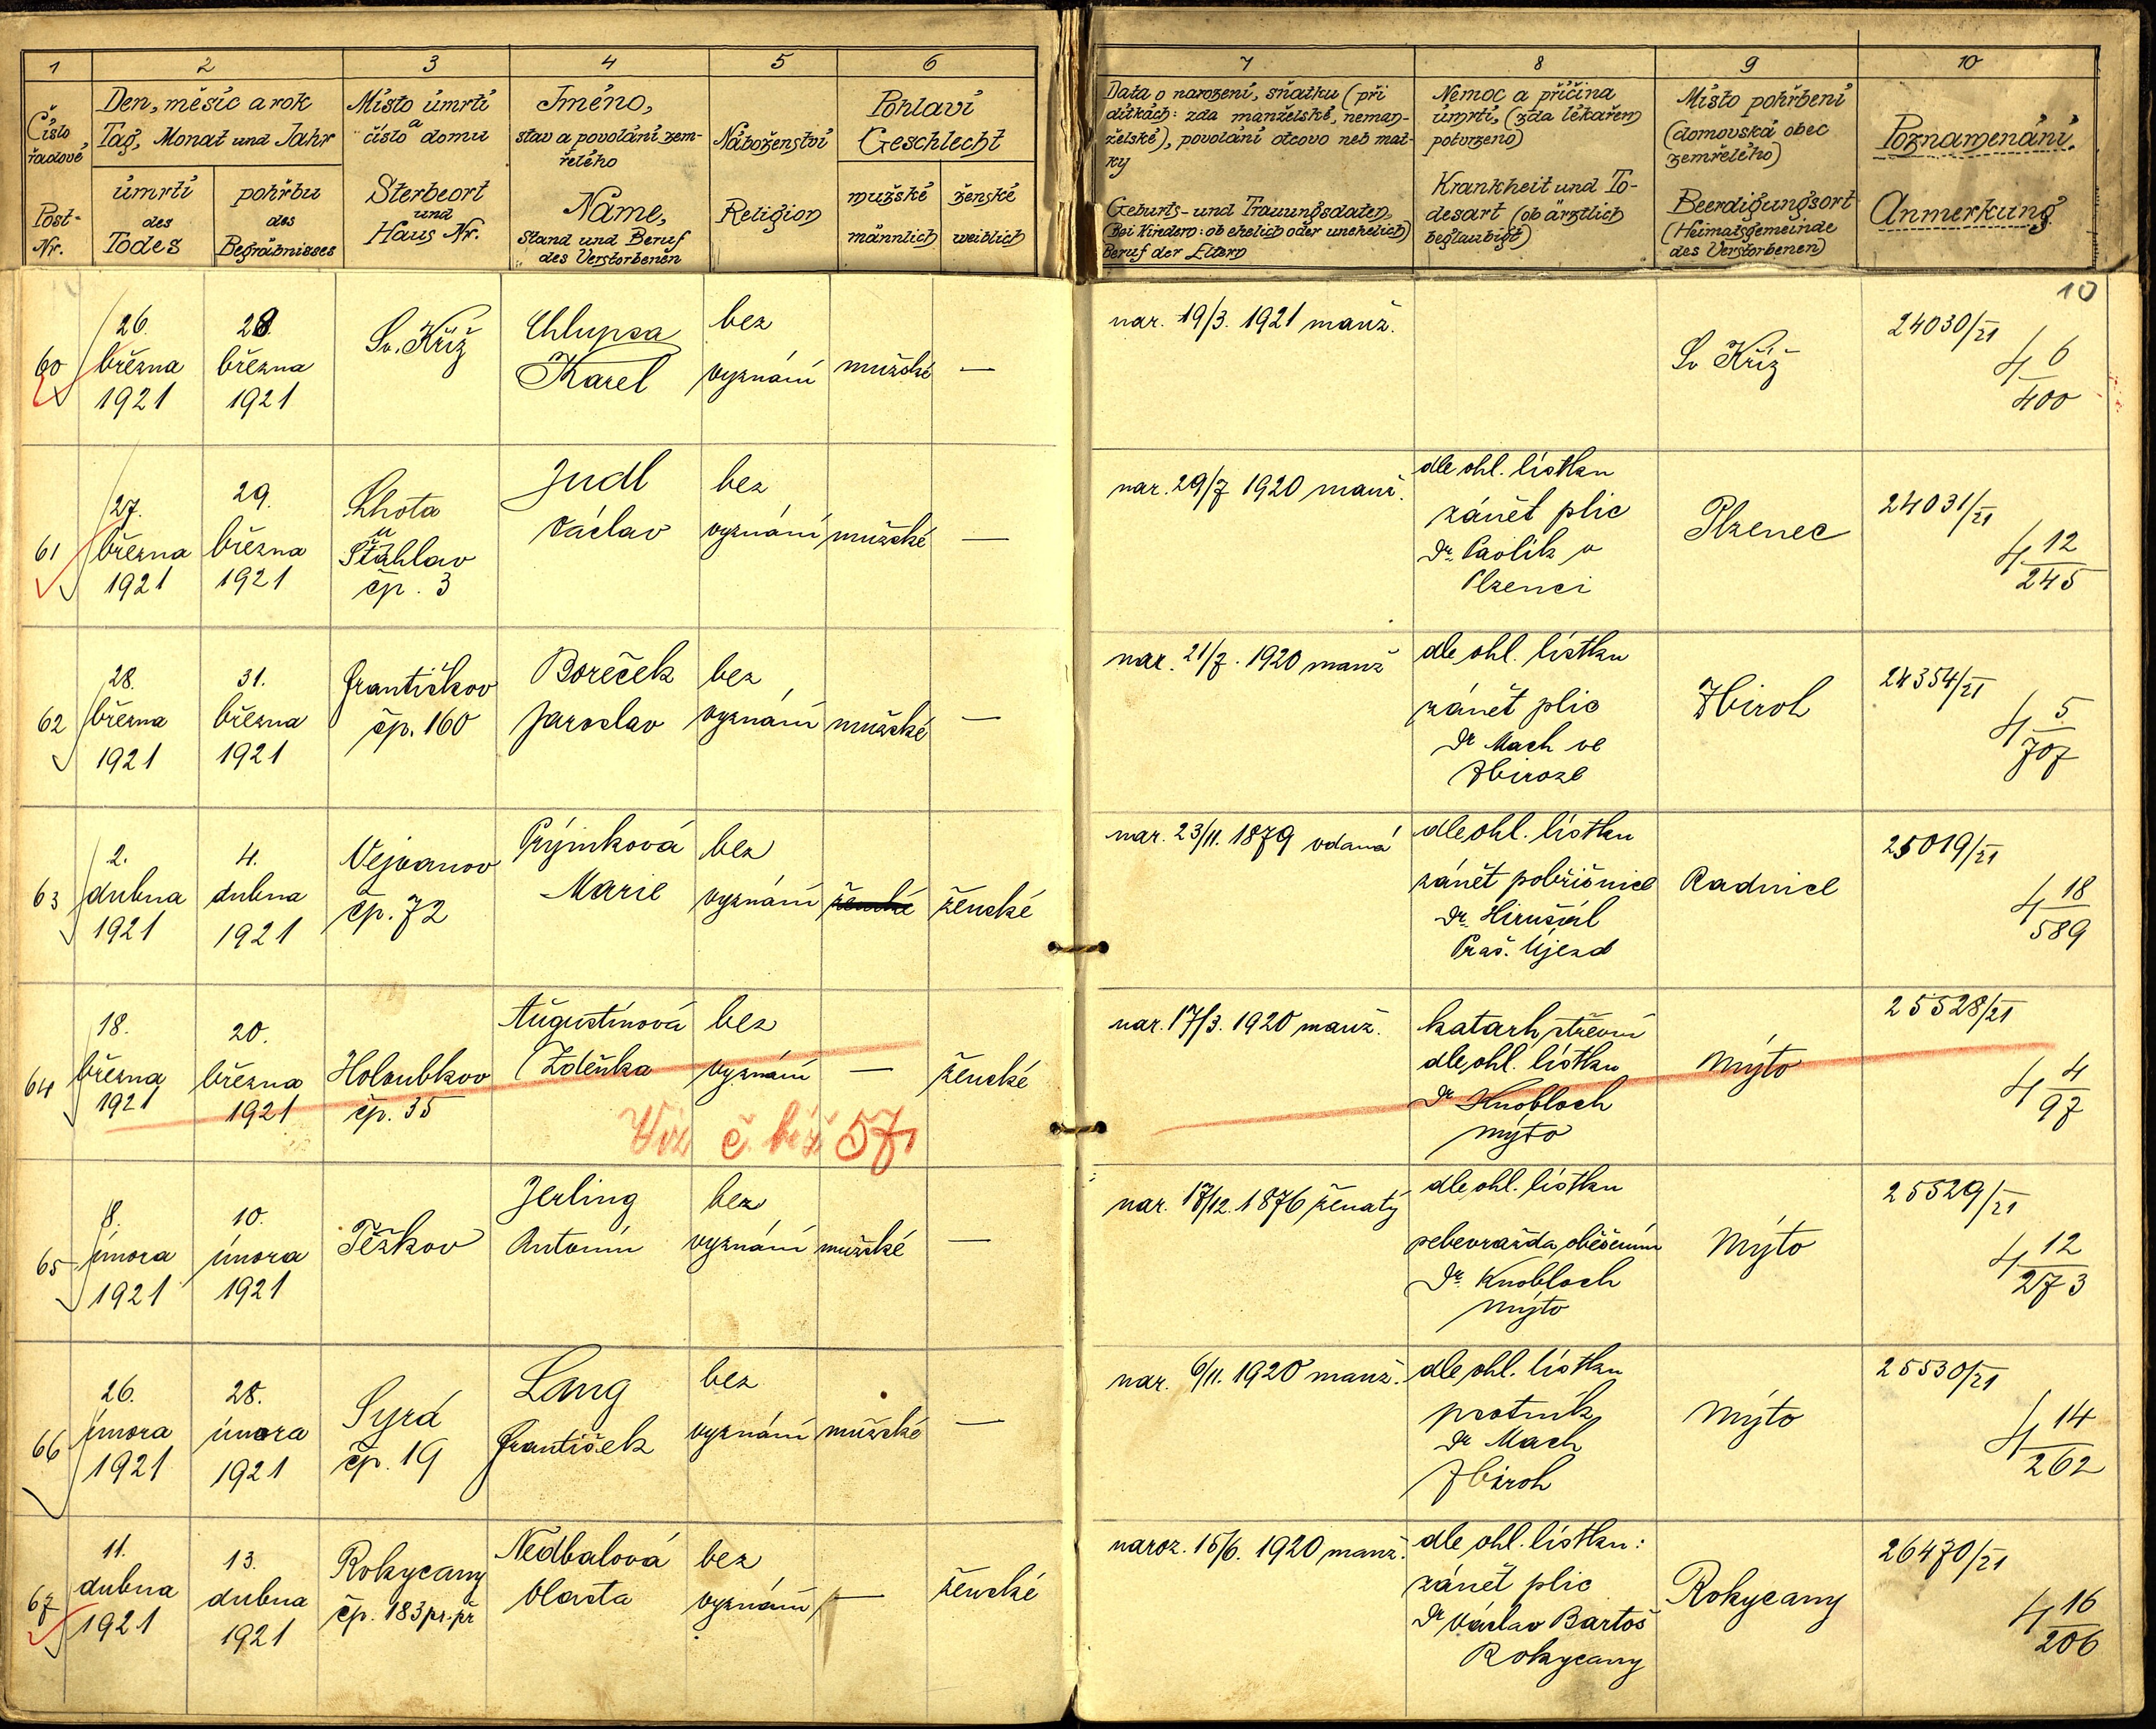 1 2 3 4 5 6
Číslo řadové
Post-Nr.
Den, měsíc a rok
Tag, Monat und Jahr
úmrtí
des
Todes
pohřbu
des
Begräbnisses
Místo úmrtí
a
číslo domu
Sterbeort
und
Haus Nr.
Jméno,
stav a povolání zem-
řelého
Name,
Stand und Beruf
des Verstorbenen
Náboženství
Religion
Pohlaví
Geschlecht
mužské
männlich
ženské
weiblich
7 8 9 10
Data o narození, sňatku (při
dítkách: zda manželské,neman-
želské), povolání otcovo neb mat-
ky
Geburts- und Trauungsdaten
(Bei Kindern: ob ehelich oder unehelich)
Beruf der Eltern
Nemoc a příčina
úmrtí, (zda lékařem
potvrzeno)
Krankheit und To-
desart (ob ärztlich
beglaubigt)
Místo pohřbení
(domovská obec
zemřelého)
Beerdigungsort
(Heimatsgemeinde
des Verstorbenen)
Poznamenání.
Anmerkung
10
60
26.
března
1921
28.
března
1921
Sv. Kříž
Chlupsa
Karel
bez
vyznání
mužské
—
nar. 19/3. 1921 manž.
Sv Kříž
24030/21
4 6/400
61
27.
března
1921
29.
března
1921
Lhota
u
Šťáhlav
čp. 3
Judl
Václav
bez
vyznání
mužské
—
nar. 29/7 1920 manž.
dle ohl. lístku
zánět plic
Dr. Pavlík v
Plzenci
Plzenec
24031/21
4 12/245
62
28.
března
1921
31.
března
1921
Františkov
čp. 160
Boreček
Jaroslav
bez
vyznání
mužské
—
nar. 21/7. 1920 manž
dle ohl. lístku
zánět plic
Dr Mach ve
Zbiroze
Zbiroh
24354/21
4 5/707
63
2.
dubna
1921
4.
dubna
1921
Vejvanov
čp. 72
Marie
bez
vyznání
ženské
ženské
nar. 23/11. 1879 vdaná
dle ohl. lístku
zánět pobřišnice
Dr. Hirušál
Praš. Újezd
Radnice
25019/21
4 18/589
64
18.
března
1921
20.
března
1921
Holoubkov
čp. 35
Augustinová
Zdeňka
bez
vyznání
—
ženské
Viz č. běž 57
nar. 17/3. 1920 manž.
katarh střevní
dle ohl. lístku
Dr Knobloch
Mýto
Mýto
25528/21
4 4/97
65
8.
února
1921
10.
února
1921
Těškov
Jerling
Antonín
bez
vyznání
mužské
—
nar. 17/12. 1876 ženatý
dle ohl. lístku
sebevražda oběšením
Dr. Knobloch
Mýto
Mýto
25529/21
4 12/273
66
26.
února
1921
28.
února
1921
Syrá
čp. 19
Lang
František
bez
vyznání
mužské
—
nar. 6/11. 1920 manž.
dle ohl. lístku
psotník
Dr Mach
Zbiroh
Mýto
25530/21
4 14/262
67
11.
dubna
1921
13.
dubna
1921
Rokycany
čp. 183 pr. př
Nedbalová
Vlasta
bez
vyznání
—
ženské
naroz. 15/6. 1920 manž.
dle ohl. lístku:
zánět plic
Dr Václav Bartoš
Rokycany
Rokycany
26470/21
4 16/206